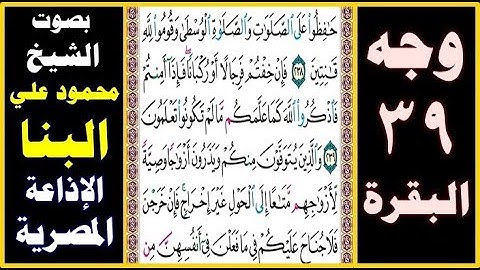 وجه
٣٩
البقرة
حَٰفِظُوا۟ عَلَى ٱلصَّلَوَٰتِ وَٱلصَّلَوٰةِ ٱلْوُسْطَىٰ وَقُومُوا۟ لِلَّهِ
قَٰنِتِينَ ٢٣٨ فَإِنْ خِفْتُمْ فَرِجَالًا أَوْ رُكْبَانًا ۖ فَإِذَآ أَمِنتُمْ
فَٱذْكُرُوا۟ ٱللَّهَ كَمَا عَلَّمَكُم مَّا لَمْ تَكُونُوا۟ تَعْلَمُونَ
٢٣٩ وَٱلَّذِينَ يُتَوَفَّوْنَ مِنكُمْ وَيَذَرُونَ أَزْوَٰجًا وَصِيَّةً
لِّأَزْوَٰجِهِم مَّتَٰعًا إِلَى ٱلْحَوْلِ غَيْرَ إِخْرَاجٍ ۚ فَإِنْ خَرَجْنَ
فَلَا جُنَاحَ عَلَيْكُمْ فِى مَا فَعَلْنَ فِىٓ أَنفُسِهِنَّ مِن
بصوت
الشيخ
محمود علي
البنا
الإذاعة
المصرية